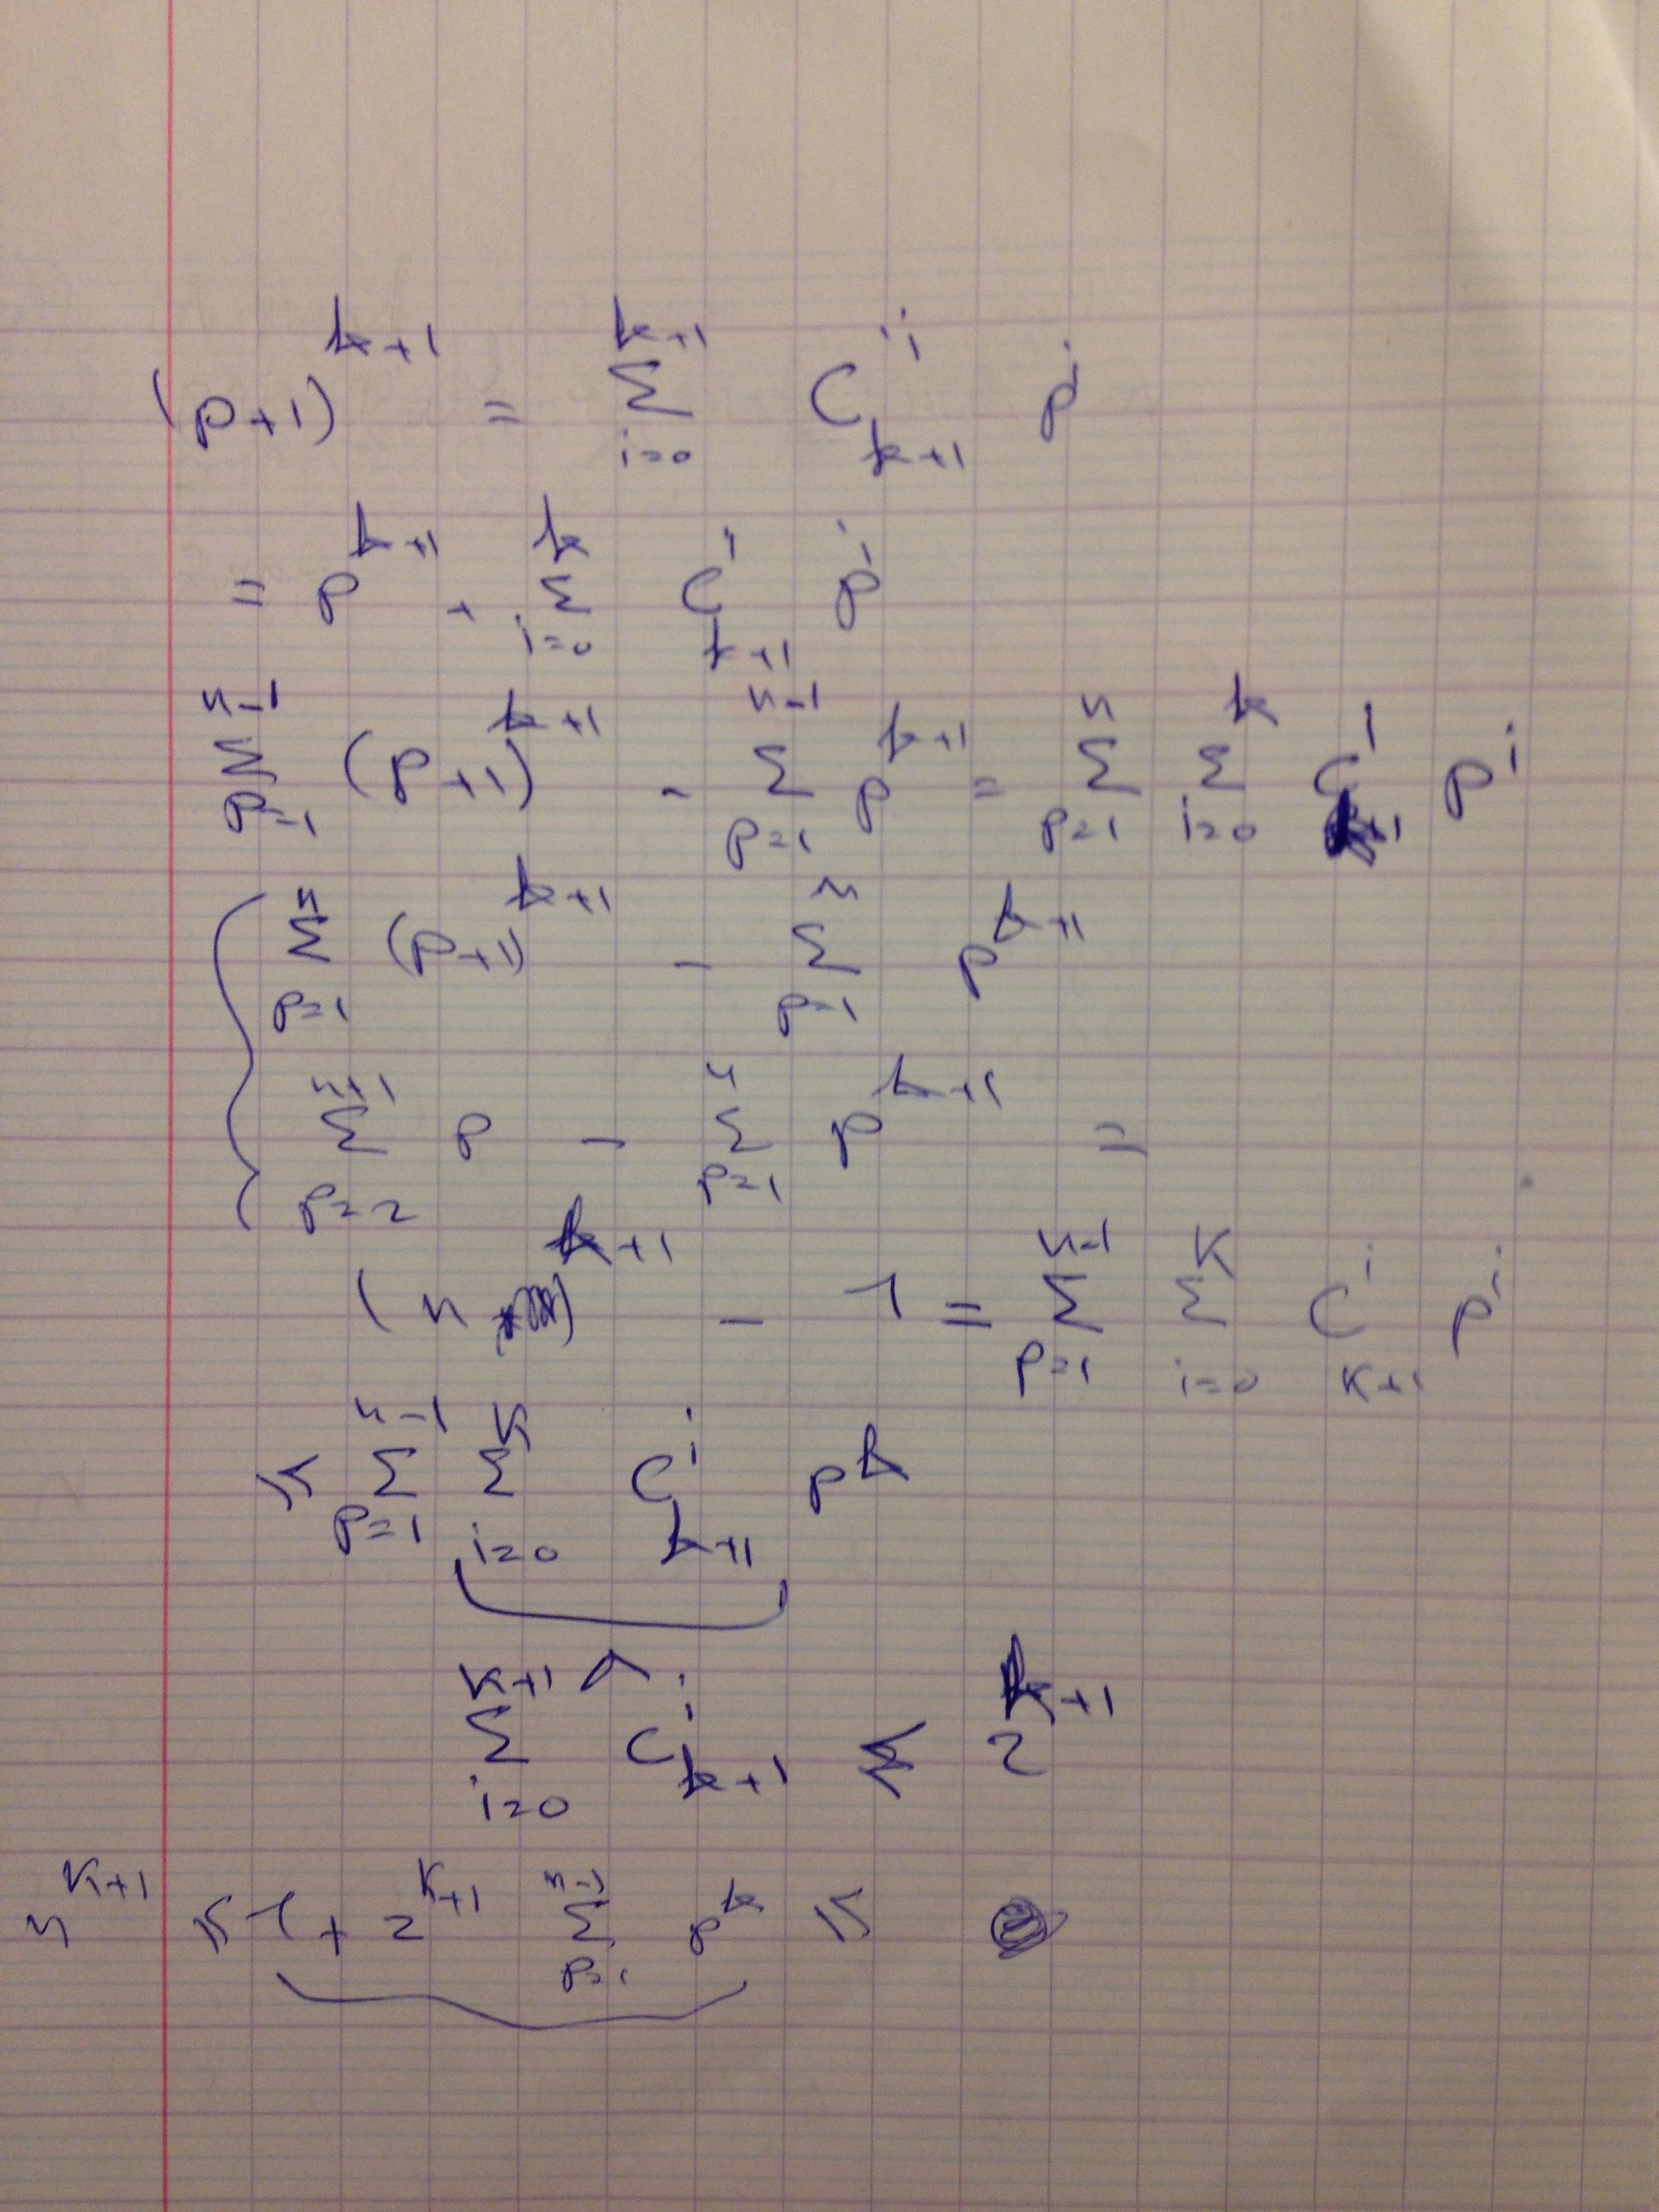 (p+1)^{k+1} = \sum_{i=0}^{k+1} C_{k+1}^{i} p^{i}
= p^{k+1} + \sum_{i=0}^{k} C_{k+1}^{i} p^{i}
\sum_{p=1}^{n-1} (p+1)^{k+1} - \sum_{p=1}^{n-1} p^{k+1} = \sum_{p=1}^{n} \sum_{i=0}^{k} C_{k+1}^{i} p^{i}
\sum_{p=1}^{n} (p+1)^{k+1} - \sum_{p=1}^{n} p^{k+1}
\sum_{p=2}^{n+1} p - \sum_{p=1}^{n} p^{k+1} =
(n)^{k+1} - 1 = \sum_{p=1}^{n-1} \sum_{i=0}^{k} C_{k+1}^{i} p^{i}
≤ \sum_{p=1}^{n-1} \sum_{i=0}^{k} C_{k+1}^{i} p^{k}
\sum_{i=0}^{k+1} C_{k+1}^{i} ≤ 2^{k+1}
n^{k+1} ≤ 1 + 2^{k+1} \sum_{p=1}^{n-1} p^{k} ≤